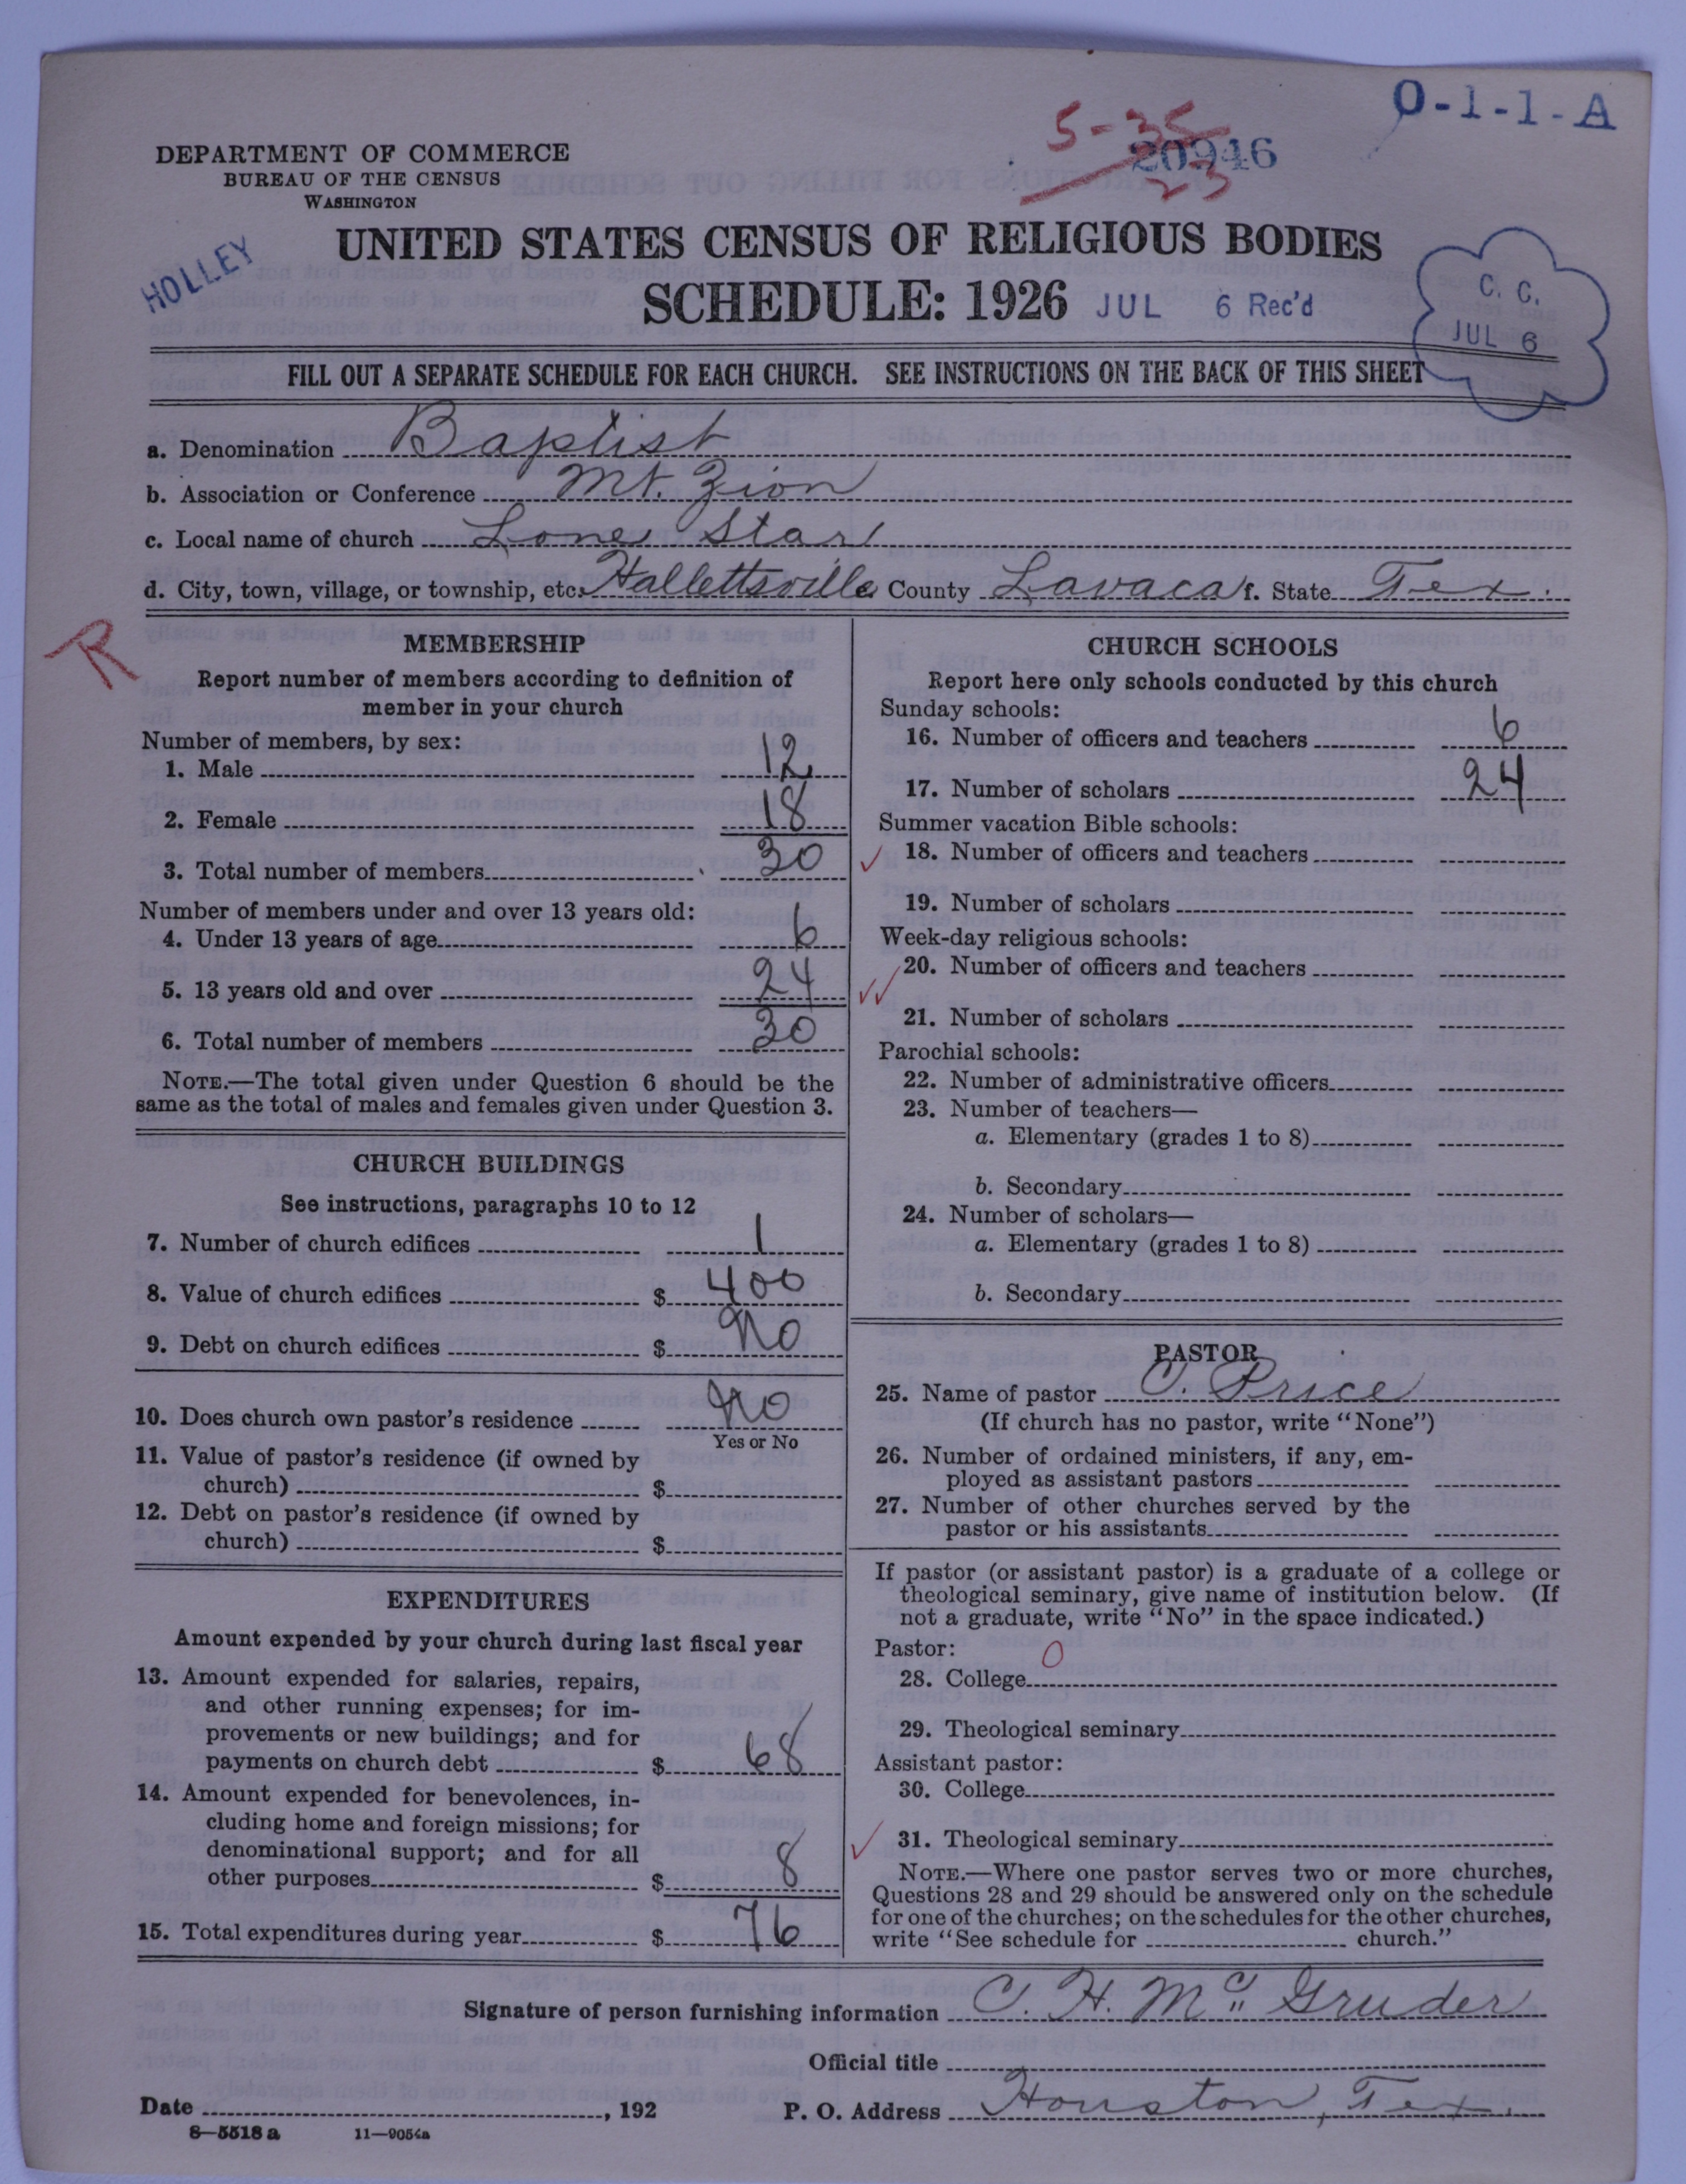 O-1-1-A
5-35
20946
23
DEPARTMENT OF COMMERCE
BUREAU OF THE CENSUS
WASHINGTON
HOLLEY
UNITED STATES CENSUS OF RELIGIOUS BODIES
SCHEDULE: 1926 JUL 6 Rec'd
C. C.
JUL 6
FILL OUT A SEPARATE SCHEDULE FOR EACH CHURCH. SEE INSTRUCTIONS ON THE BACK OF THIS SHEET
a. Denomination Baptist
b. Association or Conference Mt. Zion
c. Local name of church Lone Star
d. City, town, village, or township, etc. Hallettsville County Lavaca f. State Tex.
R
MEMBERSHIP
Report number of members according to definition of
member in your church
Number of members, by sex:
1. Male 12
2. Female 18
3. Total number of members 30
Number of members under and over 13 years old:
4. Under 13 years of age 6
5. 13 years old and over 24
6. Total number of members 30
NOTE.—The total given under Question 6 should be the
same as the total of males and females given under Question 3.
CHURCH BUILDINGS
See instructions, paragraphs 10 to 12
7. Number of church edifices 1
8. Value of church edifices $ 400
9. Debt on church edifices $ No
10. Does church own pastor's residence No
Yes or No
11. Value of pastor's residence (if owned by
church) $
12. Debt on pastor's residence (if owned by
church) $
EXPENDITURES
Amount expended by your church during last fiscal year
13. Amount expended for salaries, repairs,
and other running expenses; for im-
provements or new buildings; and for
payments on church debt $ 68
14. Amount expended for benevolences, in-
cluding home and foreign missions; for
denominational support; and for all
other purposes $ 8
15. Total expenditures during year $ 76
CHURCH SCHOOLS
Report here only schools conducted by this church
Sunday schools:
16. Number of officers and teachers 6
17. Number of scholars 24
Summer vacation Bible schools:
18. Number of officers and teachers
19. Number of scholars
Week-day religious schools:
20. Number of officers and teachers
21. Number of scholars
Parochial schools:
22. Number of administrative officers
23. Number of teachers—
a. Elementary (grades 1 to 8)
b. Secondary
24. Number of scholars—
a. Elementary (grades 1 to 8)
b. Secondary
PASTOR
25. Name of pastor C. Price
(If church has no pastor, write "None")
26. Number of ordained ministers, if any, em-
ployed as assistant pastors
27. Number of other churches served by the
pastor or his assistants
If pastor (or assistant pastor) is a graduate of a college or
theological seminary, give name of institution below. (If
not a graduate, write "No" in the space indicated.)
Pastor:
28. College 0
29. Theological seminary
Assistant pastor:
30. College
31. Theological seminary
NOTE.—Where one pastor serves two or more churches,
Questions 28 and 29 should be answered only on the schedule
for one of the churches; on the schedules for the other churches,
write "See schedule for church."
Signature of person furnishing information C. H. Mc Gruder
Official title
Date , 192 P. O. Address Houston, Tex.
8—5518 a 11—9054a